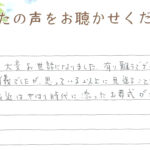 たの声をお聴かせくだ
大変お世話になりました。有り難うござ
義でしたが思っている以上に見送ること
近はやはり時代に添ったお葬式が